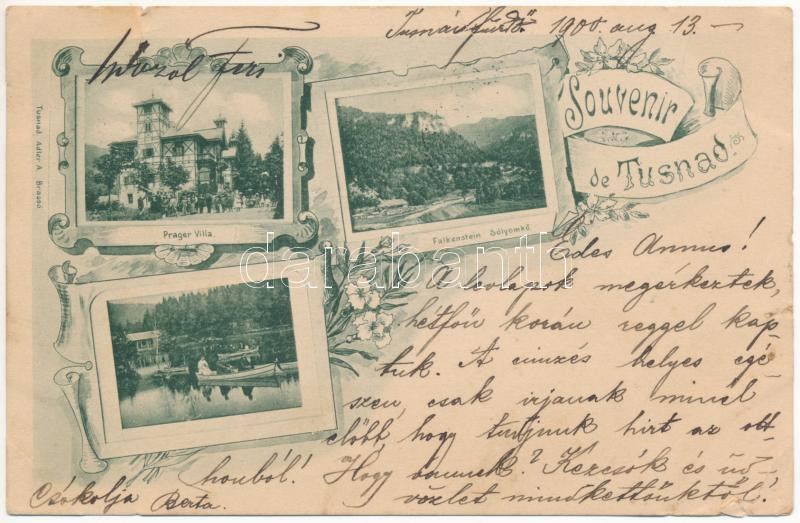 Tusnádfürdő. 1900. aug 13.-
Souvenir
de Tusnad.
Tusnad. Adler A. Brassó
Prager Villa.
Falkenstein Sólyomkő
darabanth
Édes Annus!
A levelezok megérkeztek,
hétfőn korán reggel kap-
tuk. A cimzés helyes egé-
szen, csak irjanak minél
előbb, hogy tudjunk hirt az ott-
honból! Hogy vannak? Kézcsók és üd-
vözlet mindkettőnktől!
Csókolja Berta.